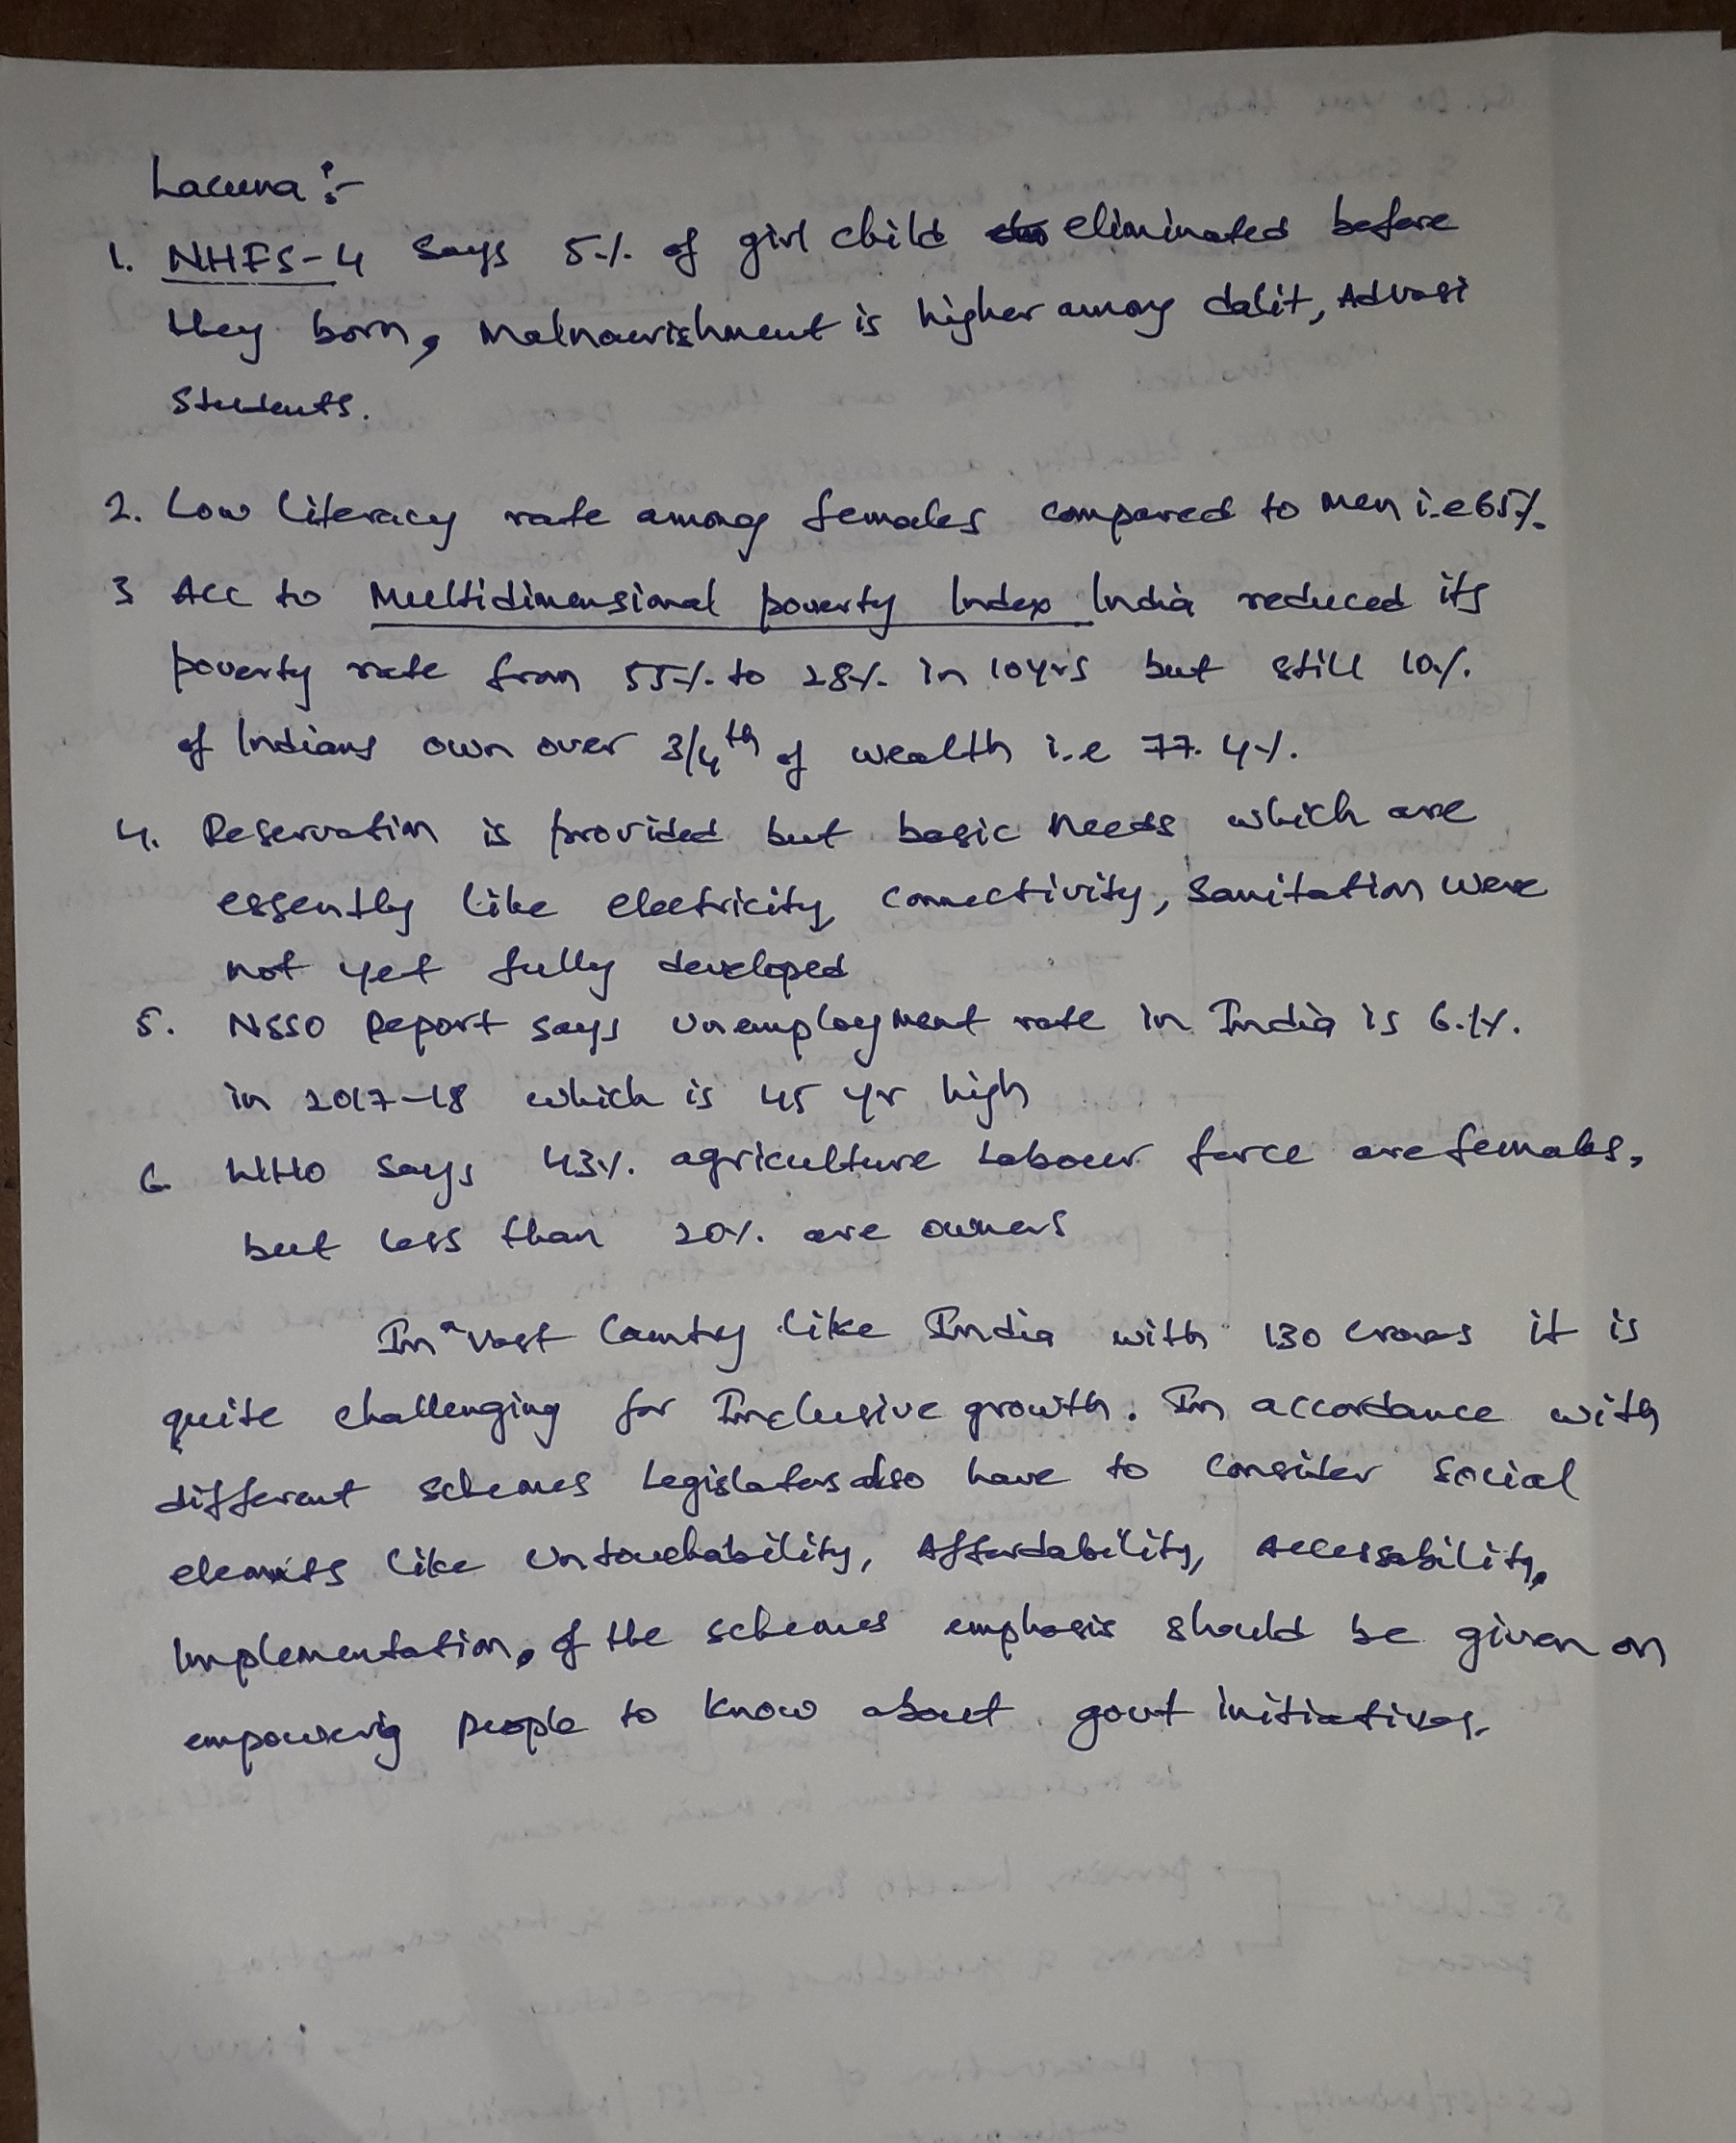 Lacuna :-
1. NHFS-4 says 5% of girl child eliminated before
they born, Malnourishment is higher among dalit, Advasi
Students.
2. Low literacy rate among females compared to men i.e 65%.
3 Acc to Multidimensional poverty Index India reduced its
poverty rate from 55% to 28% in 10yrs but still 10%
of Indians own over 3/4th of wealth i.e 77.4%.
4. Reservation is provided but basic needs which are
essently like electricity, connectivity, sanitation were
not yet fully developed
5. NSSO Report says unemployment rate in India is 6.1%.
in 2017-18 which is 45 yr high
6. WHO says 43% agriculture Labour force are females,
but less than 20% are owners
In a vast Country like India with 130 crores it is
quite challenging for Inclusive growth. In accordance with
different schemes Legislators also have to consider social
elements like Untouchability, Affordability, Accessability,
Implementation, of the schemes emphasis should be given on
empowerig people to know about govt initiatives.